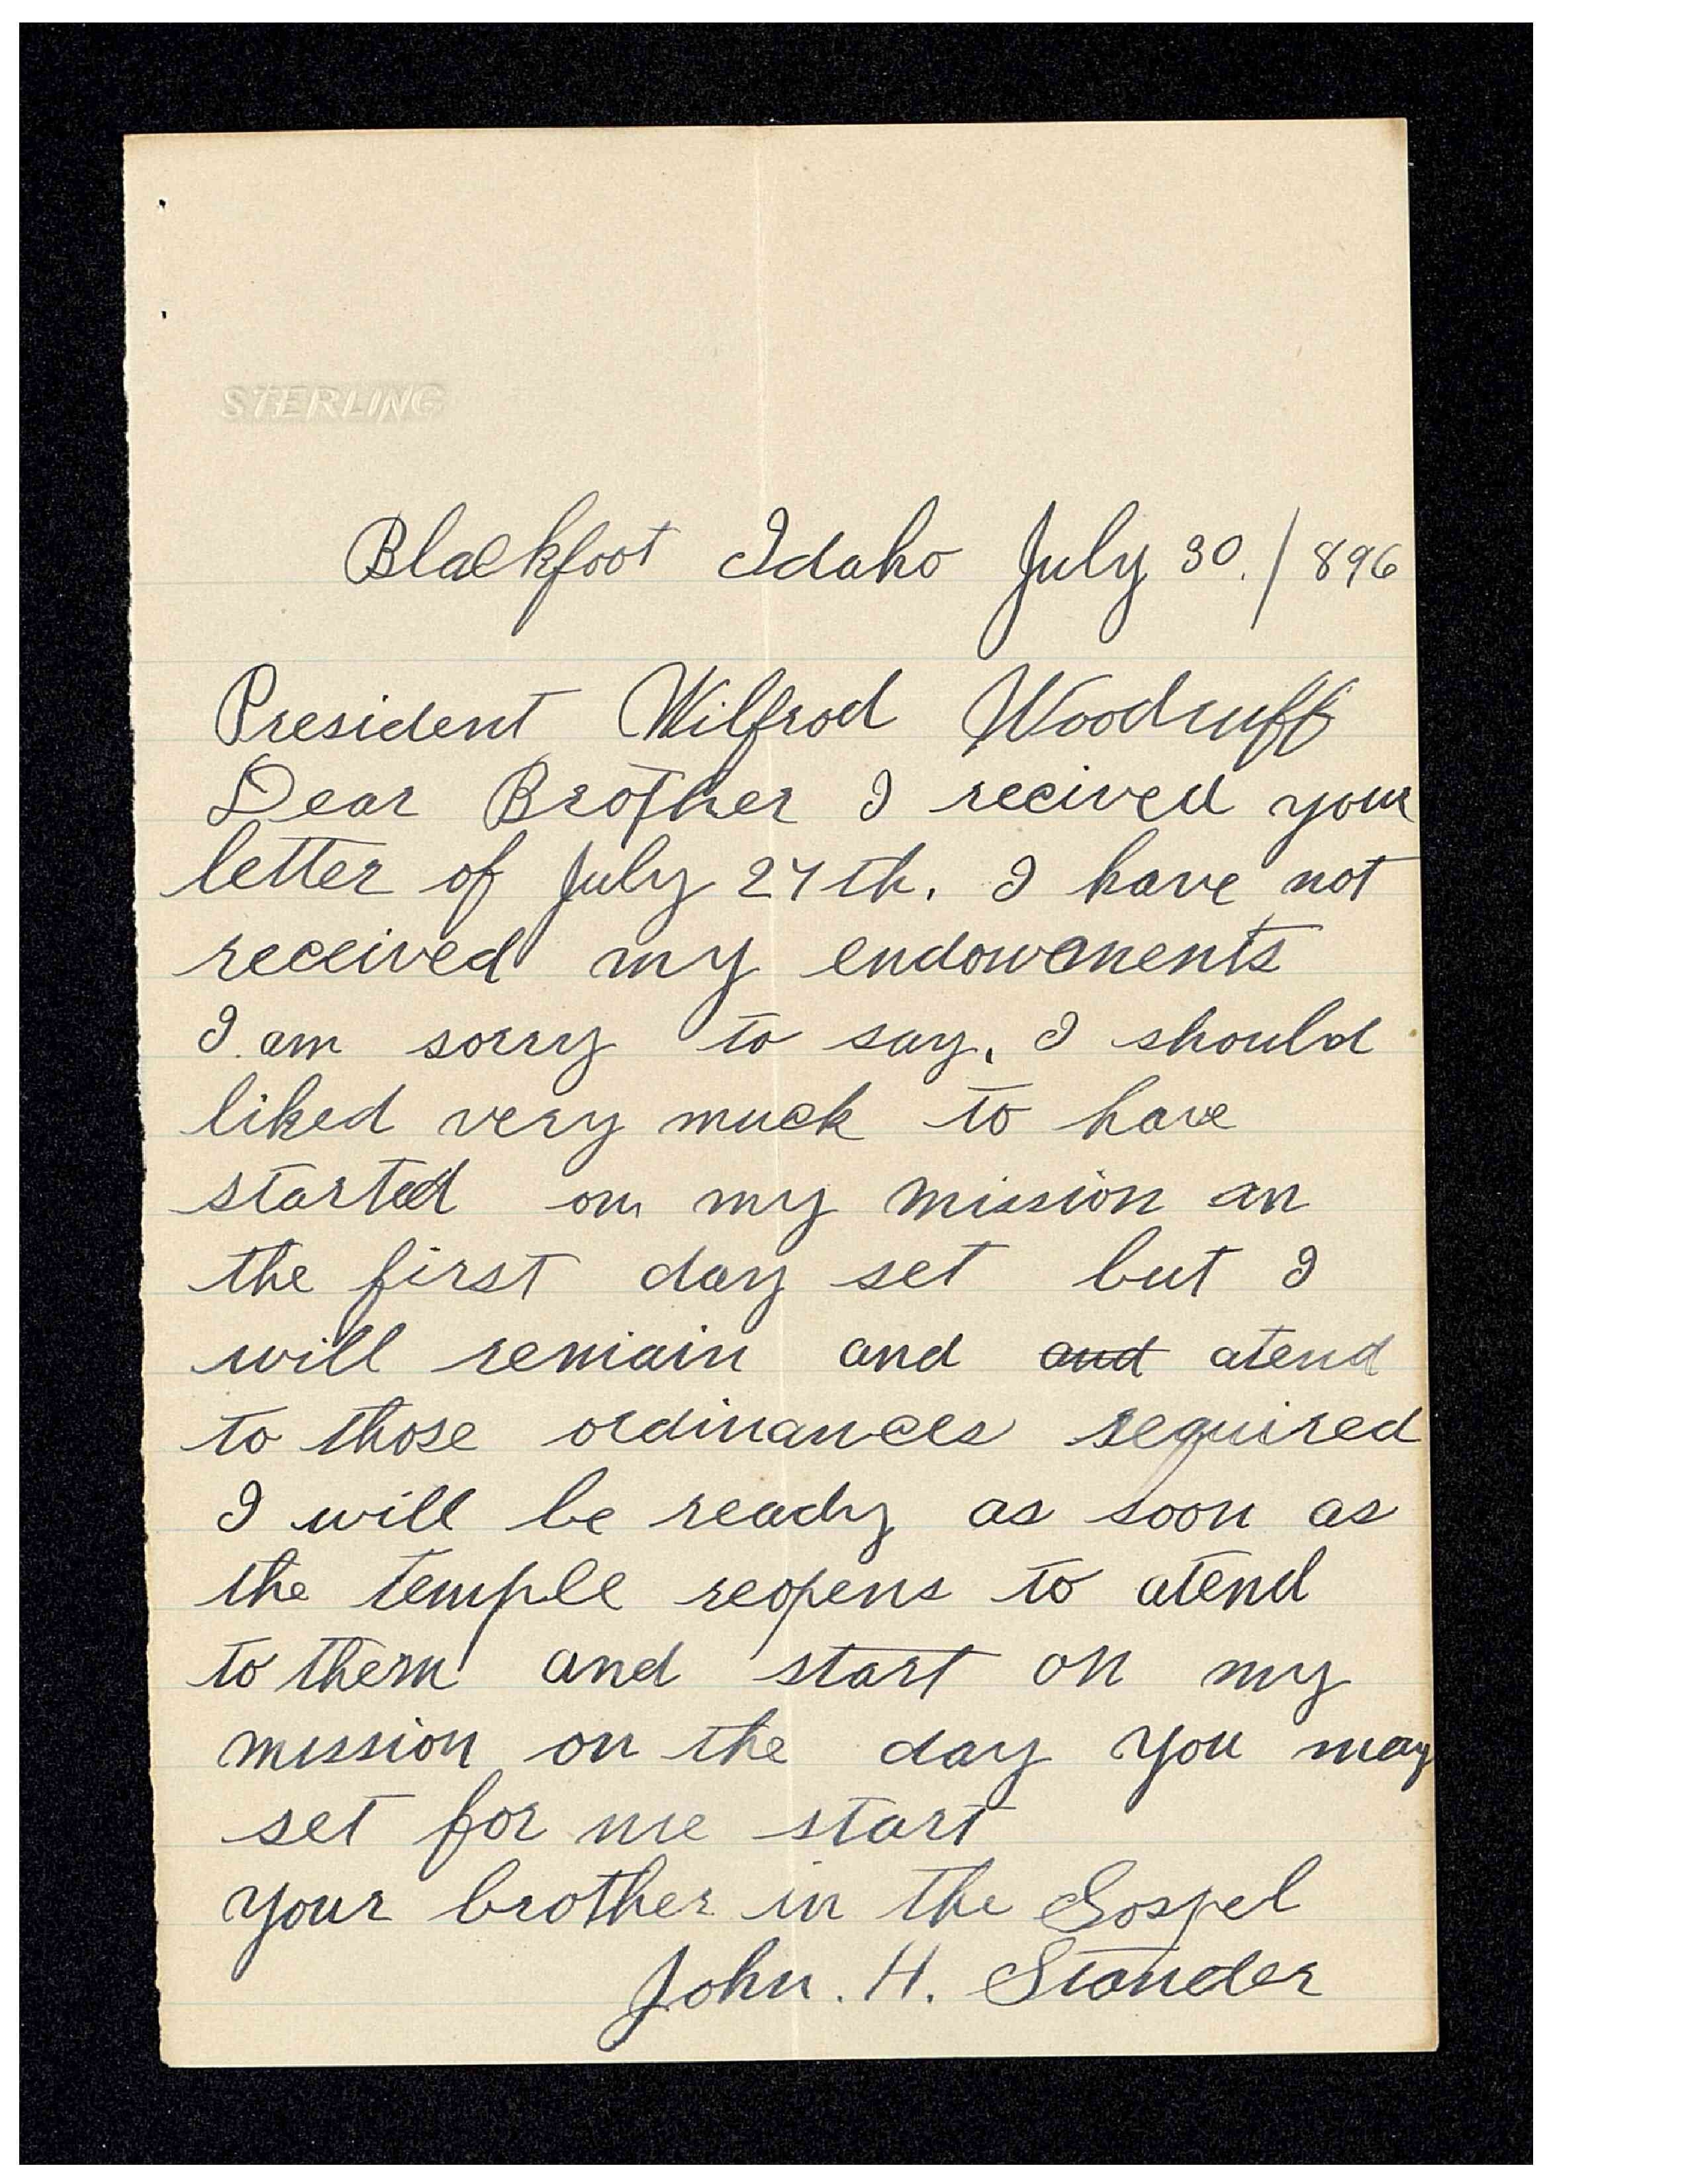 STERLING
Blackfoot Idaho July 30./896
President Wilfrod Woodruff
Dear Brother I recived your
letter of July 27th. I have not
received my endowments
I am sorry to say. I should
liked very much to have
started on my mission on
the first day set but I
will remain and and atend
to those ordinances required
I will be ready as soon as
the temple reopens to atend
to them and start on my
mission on the day you may
set for me start
your brother in the Gospel
John. H. Stander